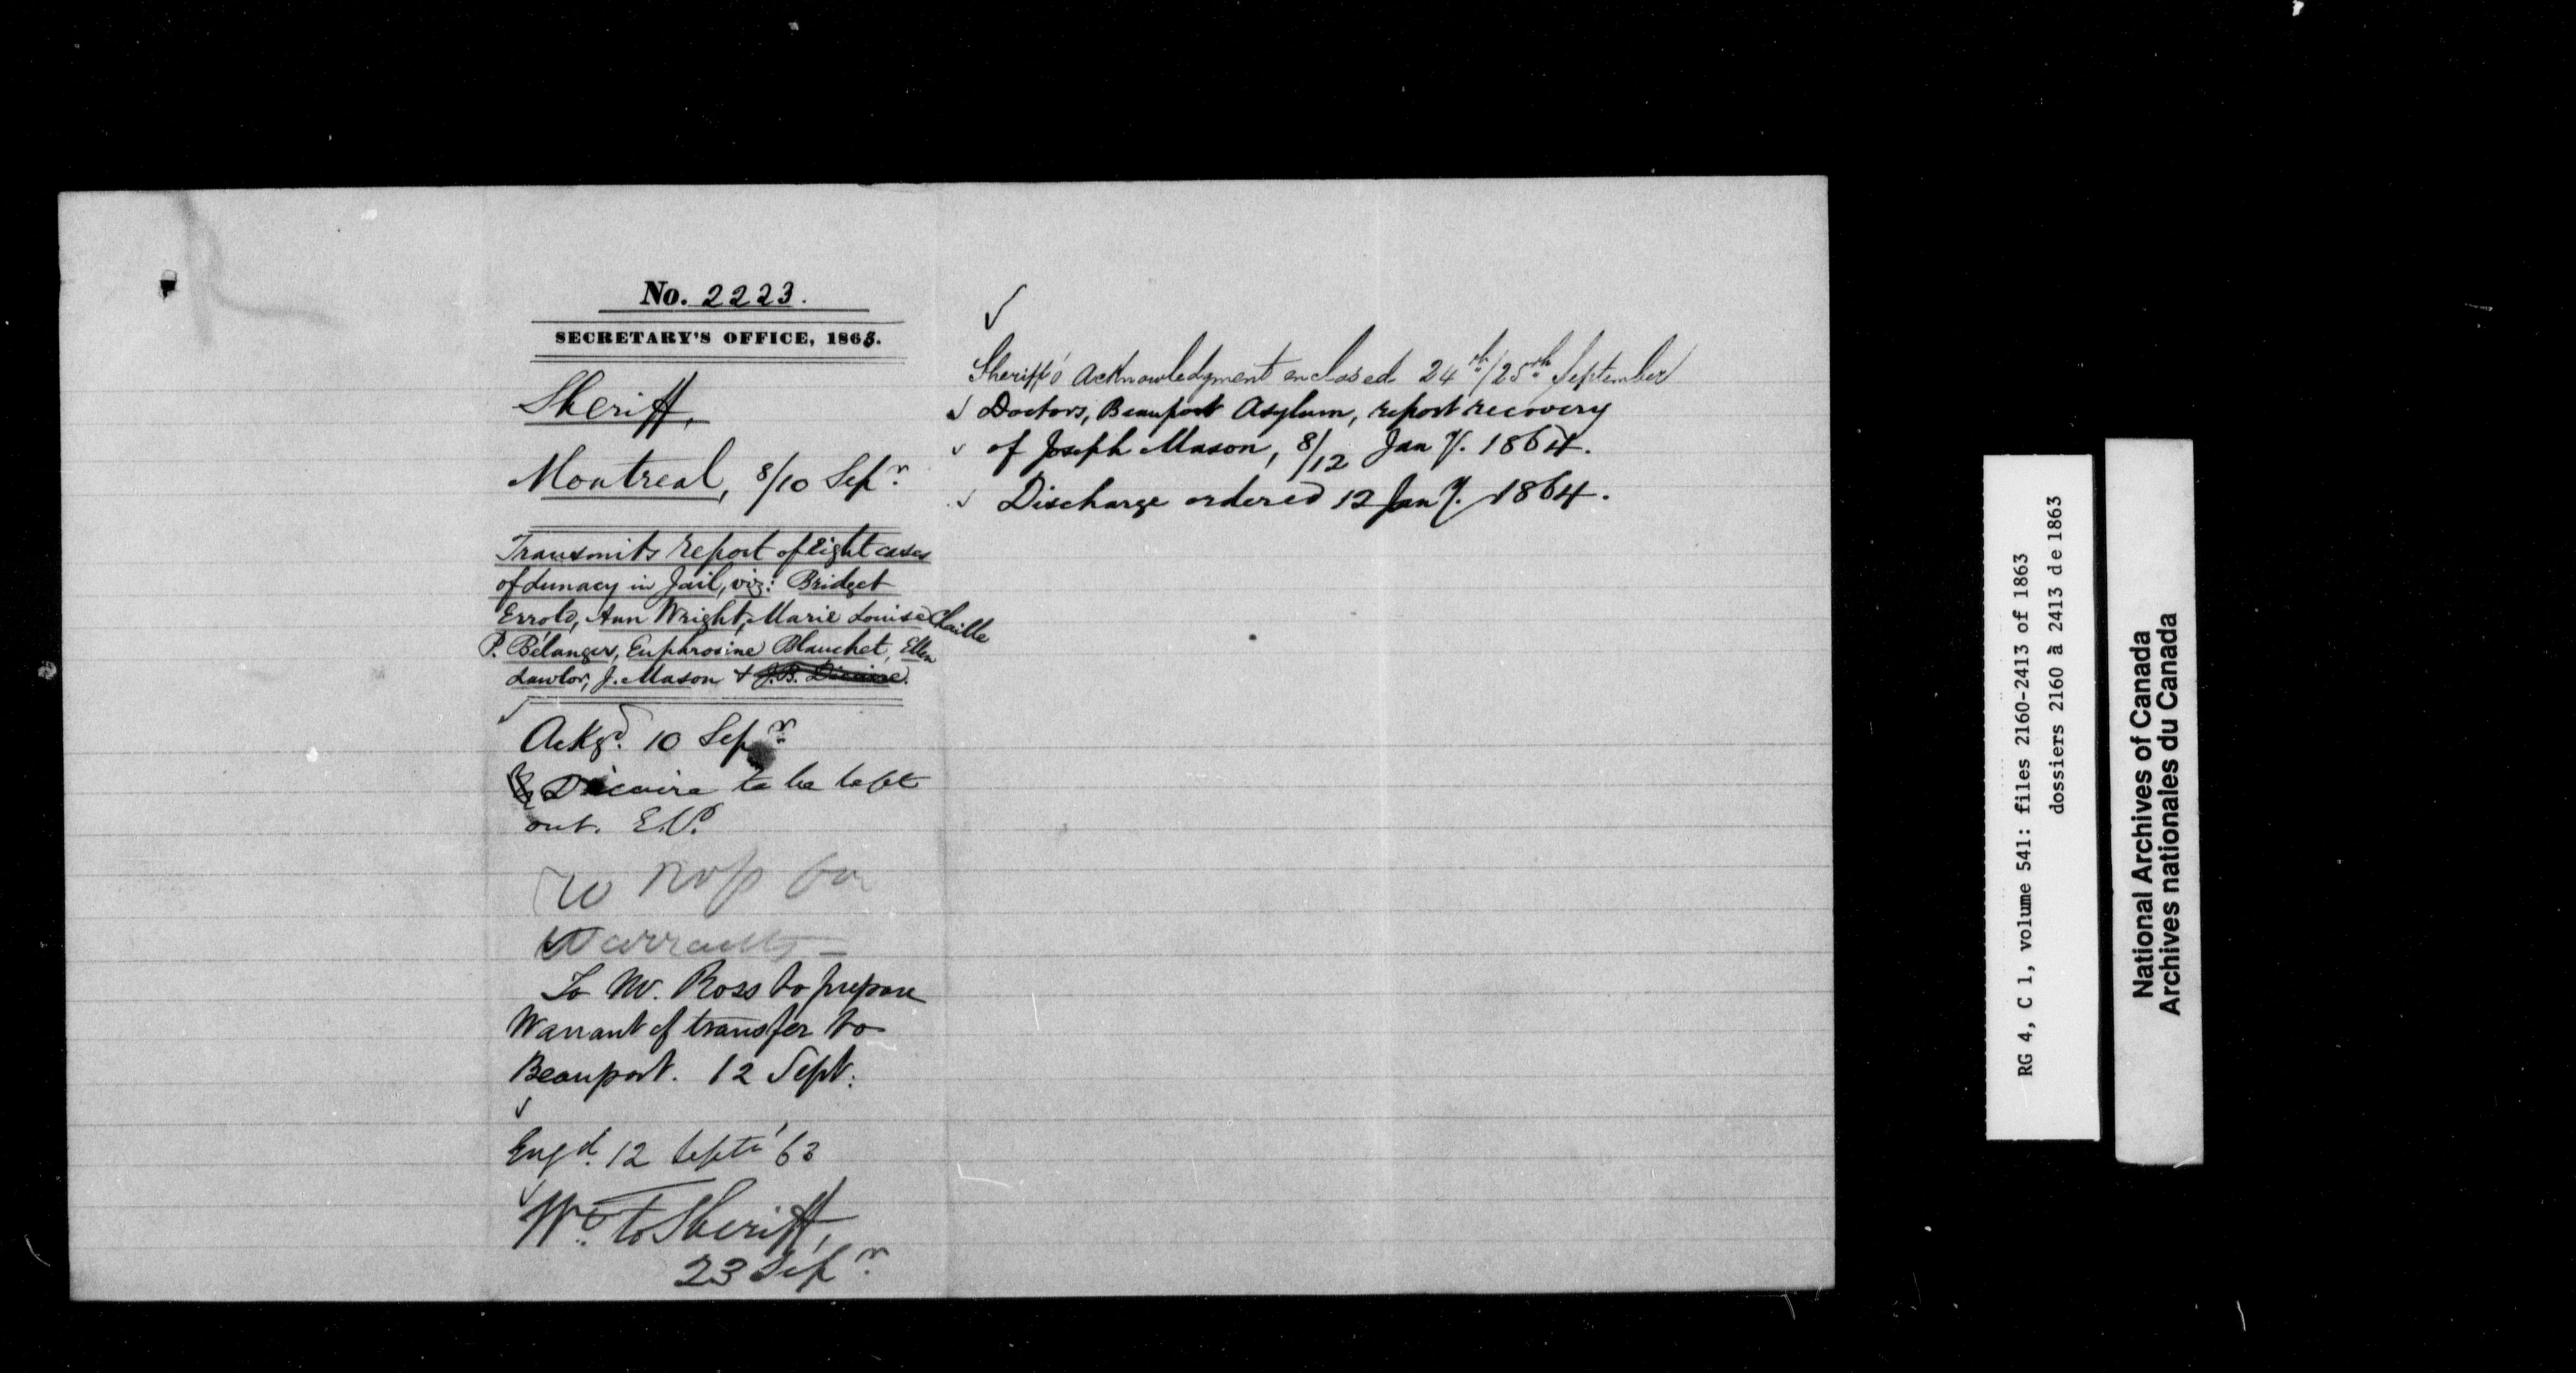 No. 2223.
SECRETARY'S OFFICE, 1863.
Sheriff,
Montreal, 8/10 Sepr.
Transmits report of eight cases
of Lunacy in Jail, viz: Bridget
Errold, Ann Wright, Marie Louise Chaille
P. Bélanger, Euphrosine Blanchet, Ellen
Lawlor, J. Mason + J.B. Dicaire.
Ackgd. 10 Sepr.
Dicaire to be left
out. E.P.
To Ross for
Warrants
To Mr. Ross to prepare
Warrant of transfer to
Beauport. 12 Sept.
Engd. 12 Septr '63
Wt. to Sheriff,
23 Sepr.
Sheriff's Acknowledgment enclosed 24th/25th September
Doctors, Beauport Asylum, report recovery
of Joseph Mason, 8/12 Jany. 1864.
Discharge ordered 12 Jany. 1864.
RG 4, C 1, volume 541: files 2160-2413 of 1863
dossiers 2160 à 2413 de 1863
National Archives of Canada
Archives nationales du Canada